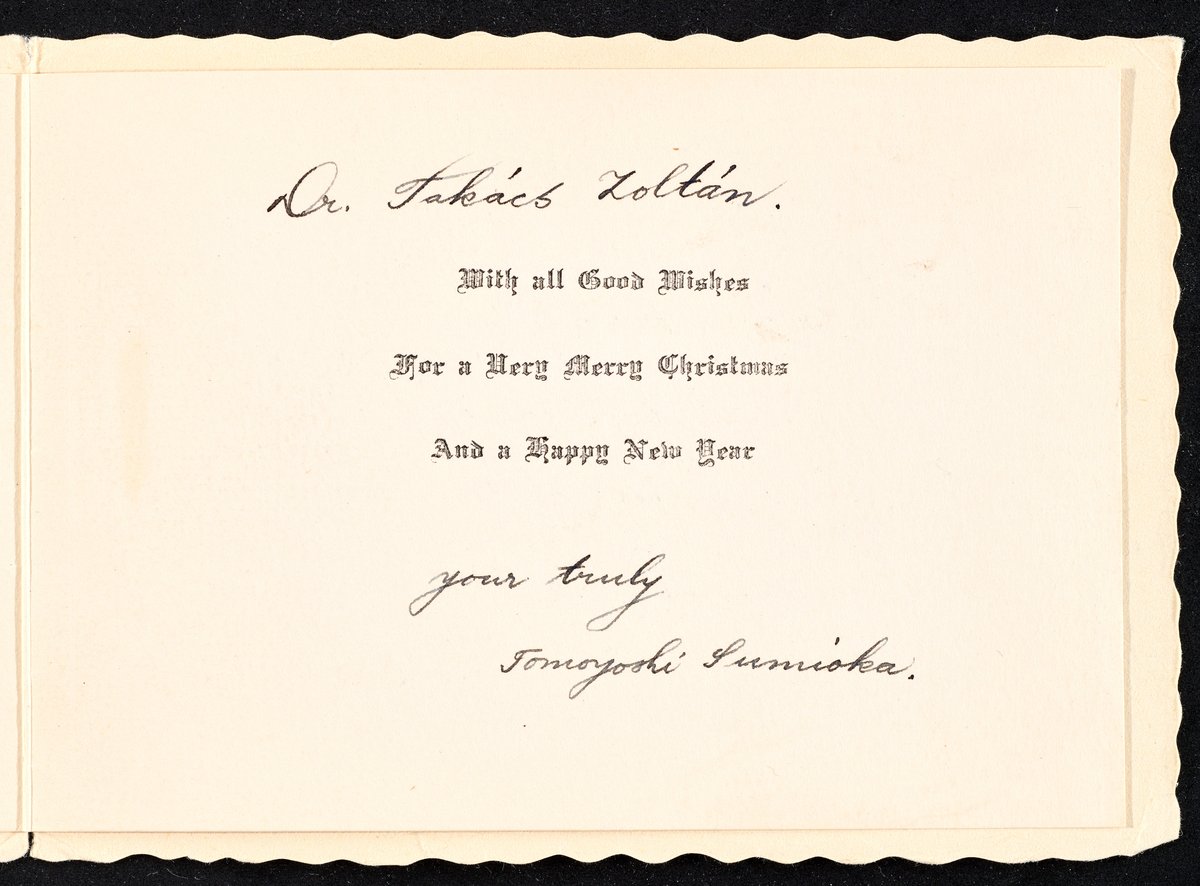 Dr. Takács Zoltán.
With all Good Wishes
For a Very Merry Christmas
And a Happy New Year
your truly
Tomoyoshi Sumioka.